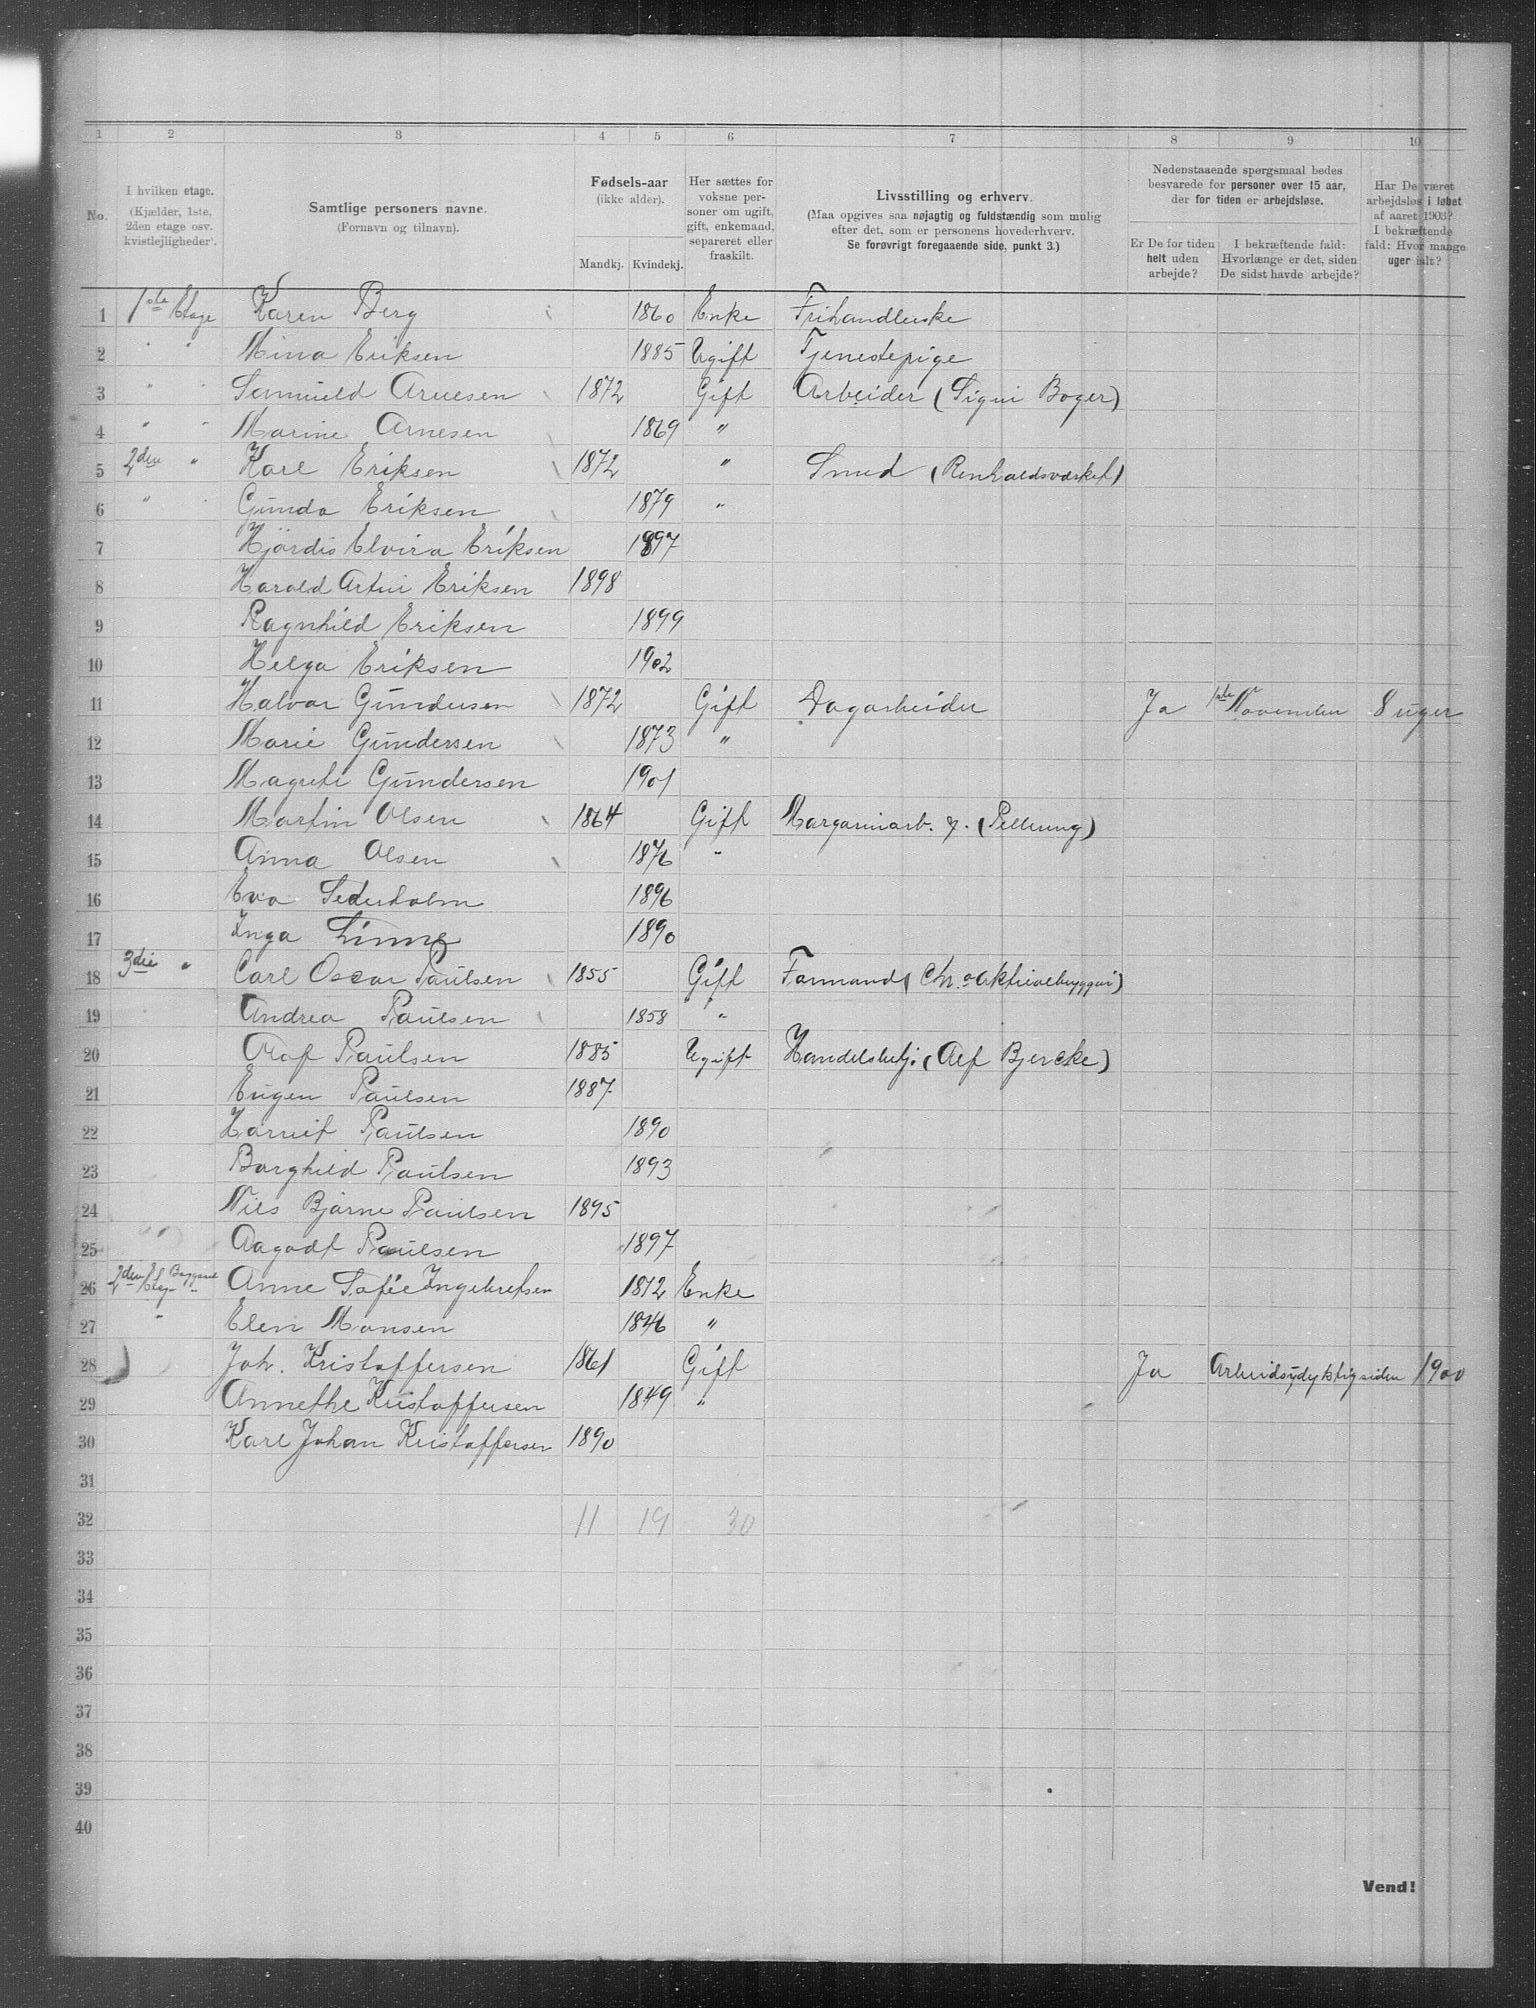 1 2 3 4 5 6 7 8 9 10
No.
I hvilken etage.
(Kjælder, 1ste, 2den etage osv. kvistlejligheder).
Samtlige personers navne.
(Fornavn og tilnavn).
Fødsels-aar
(ikke alder).
Mandkj. Kvindekj.
Her sættes for voksne personer om ugift, gift, enkemand, separeret eller fraskilt.
Livsstilling og erhverv.
(Maa opgives saa nøjagtig og fuldstændig som mulig efter det, som er personens hovederhverv.
Se forøvrigt foregaaende side, punkt 3.)
Nedenstaaende spørgsmaal bedes besvarede for personer over 15 aar, der for tiden er arbejdsløse.
Er De for tiden helt uden arbejde?
I bekræftende fald: Hvorlænge er det, siden De sidst havde arbejde?
Har De været arbejdsløs i løbet af aaret 1903? I bekræftende fald: Hvor mange uger ialt?
1 1ste Etage Karen Berg 1860 Enke Frihandlerske
2 " " Mina Eriksen 1885 Ugift Tjenestepige
3 " " Samueld Arnesen 1872 Gift Arbeider (Sigur Boger)
4 " " Marine Arnesen 1869 "
5 2den " Karl Eriksen 1872 " Smed (Renholdsværket)
6 " " Gunda Eriksen 1879 "
7 Hjördis Elvira Eriksen 1897
8 Harald Artur Eriksen 1898
9 Ragnhild Eriksen 1899
10 Helga Eriksen 1902
11 Halvor Gundersen 1872 Gift Dagarbeider Ja 1ste November 8 uger
12 Marie Gundersen 1873 "
13 Magrete Gundersen 1901
14 Martin Olsen 1864 Gift Margarinarb. (Pellerin)
15 Anna Olsen 1876 "
16 Eva Sederholm 1896
17 Inga 1890
18 3die " Carl Oscar Paulsen 1855 Gift Formand (Chr.a Aktiebryggeri)
19 Andrea Paulsen 1858 "
20 Olaf Paulsen 1885 Ugift Handelsbetj. (Alf Bjercke)
21 Eugen Paulsen 1887
22 Harriet Paulsen 1890
23 Borghild Paulsen 1893
24 Nils Bjarne Paulsen 1895
25 Aagodt Paulsen 1897
26 2den Etag. Baggaard " Anne Sofie Ingebretsen 1812 Enke
27 " Elen Monsen 1846 "
28 Joh. Kristoffersen 1861 Gift Ja Arbeidsydyktig siden 1900
29 Annethe Kristoffersen 1849 "
30 Karl Johan Kristoffersen 1890
31
32 11 19 30
33
34
35
36
37
38
39
40
Vend!